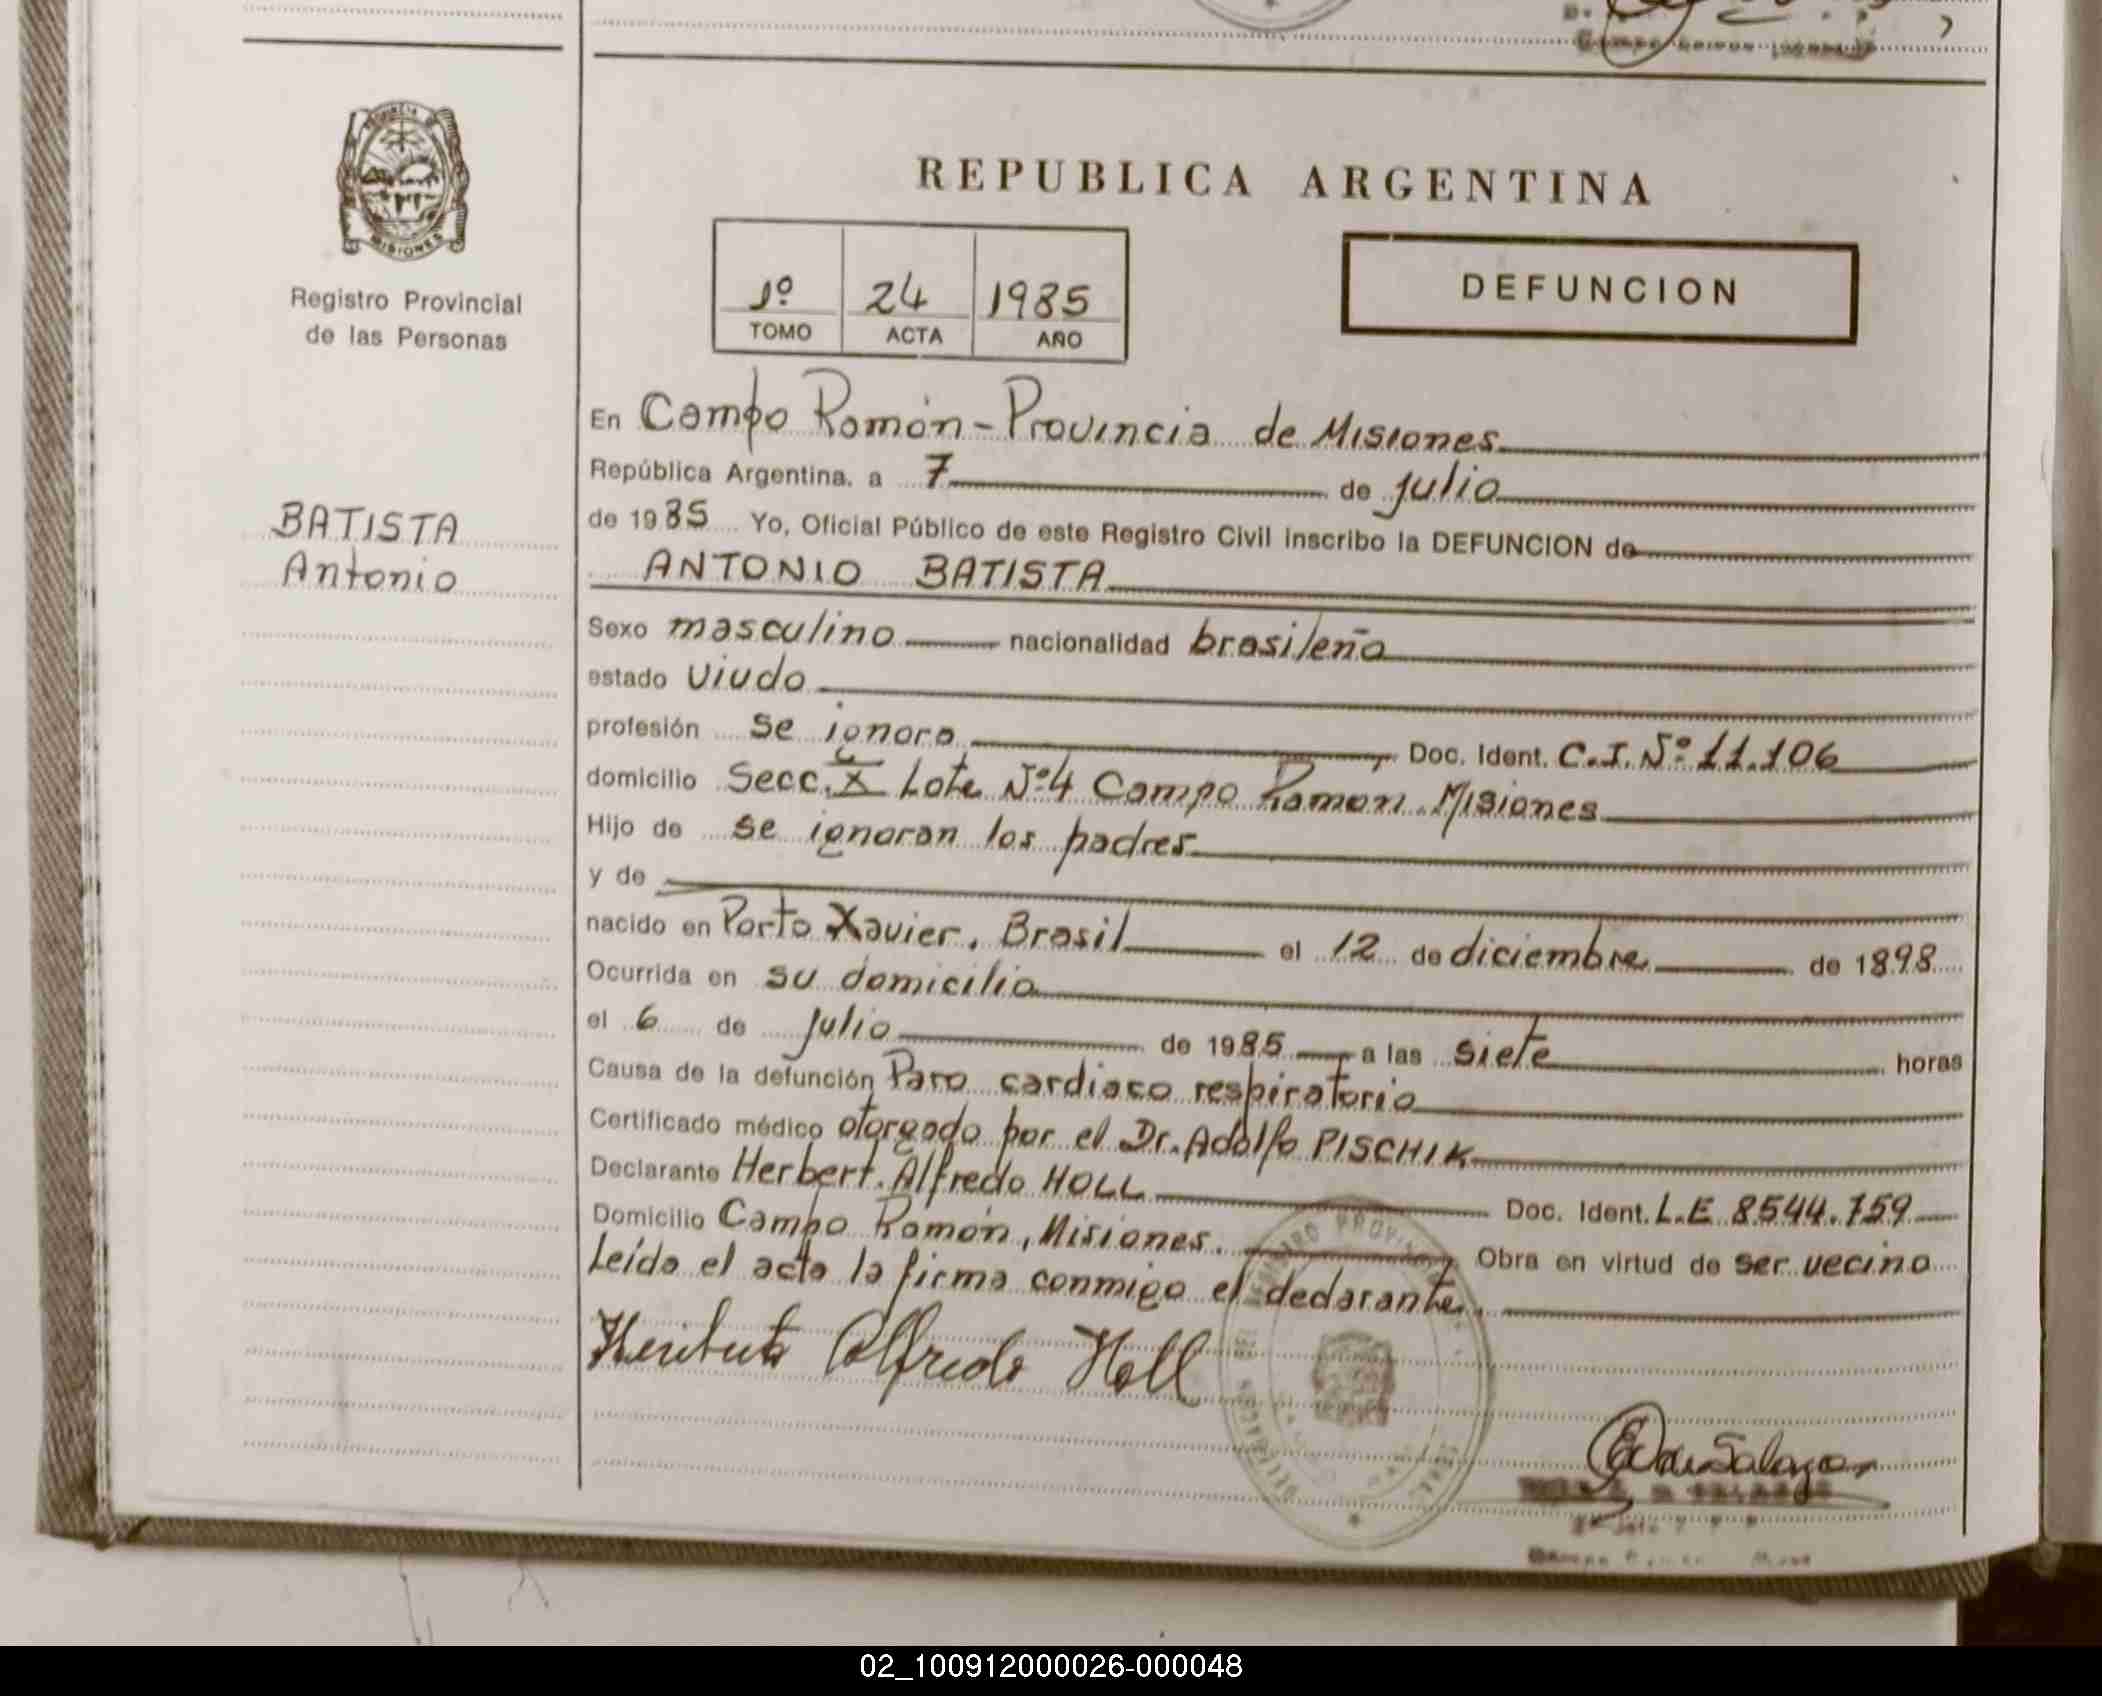 PROVINCIA DE
MISIONES
Registro Provincial
de las Personas
BATISTA
Antonio
REPUBLICA ARGENTINA
1º 24 1985
TOMO ACTA AÑO
DEFUNCION
En Campo Ramón - Provincia de Misiones
República Argentina, a 7 de julio
de 1985 Yo, Oficial Público de este Registro Civil inscribo la DEFUNCION de
ANTONIO BATISTA
Sexo masculino nacionalidad brasileña
estado viudo
profesión se ignora Doc. Ident. C.I. Nº 11.106
domicilio Secc. X Lote Nº 4 Campo Ramon. Misiones
Hijo de se ignoran los padres
y de
nacido en Porto Xavier, Brasil el 12 de diciembre de 1898
Ocurrida en su domicilio
el 6 de julio de 1985 a las siete horas
Causa de la defunción Paro cardiaco respiratorio
Certificado médico otorgado por el Dr. Adolfo PISCHIK
Declarante Herbert Alfredo HOLL Doc. Ident. L.E 8544.759
Domicilio Campo Ramón, Misiones. Obra en virtud de ser vecino
Leída el acta la firma conmigo el declarante.
Alfredo Holl
02_100912000026-000048